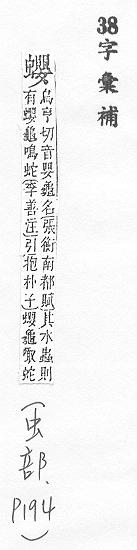 38字彙補
蠳
烏亨切音嬰龜名張衡南都賦其水蟲則
有蠳龜鳴蛇李善注引抱朴子蠳龜蛇
(虫部、P194)